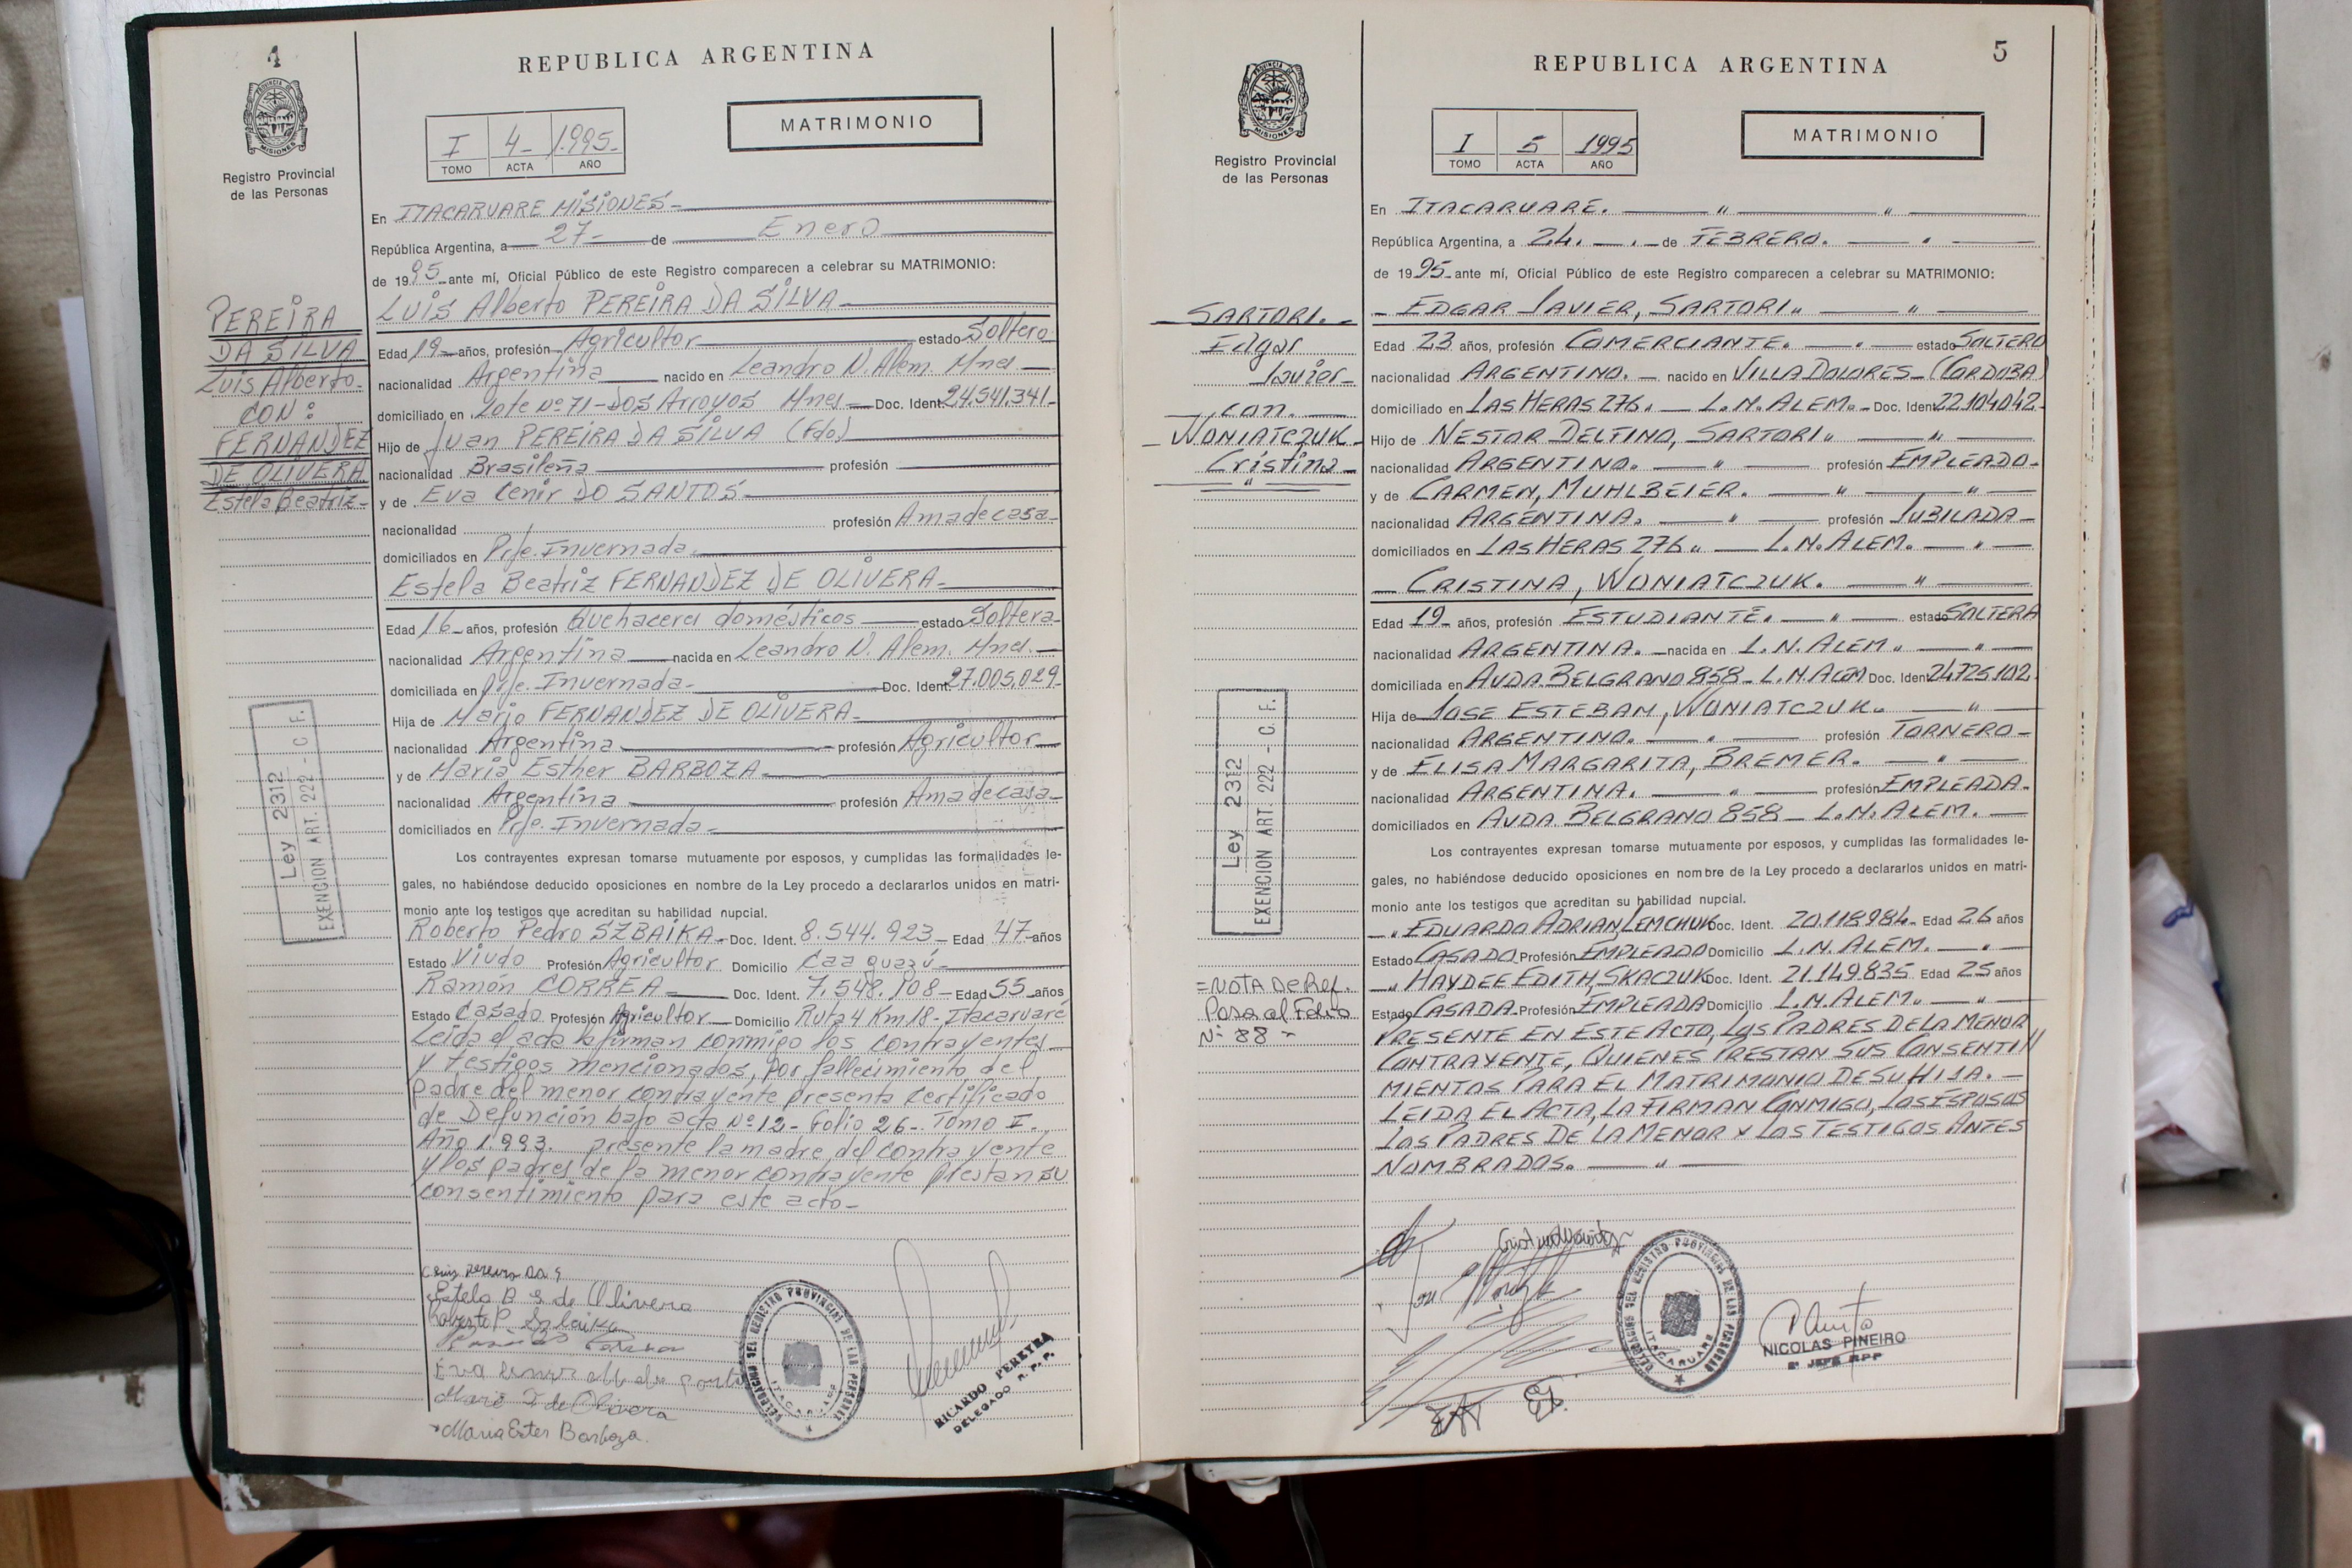 4
REPUBLICA ARGENTINA
PROVINCIA DE
MISIONES
Registro Provincial
de las Personas
I 4- 1.995-
TOMO ACTA AÑO
MATRIMONIO
En ITACARUARE MISIONES-
República Argentina, a 27- de Enero
de 1995 ante mí, Oficial Público de este Registro comparecen a celebrar su MATRIMONIO:
LUIS Alberto PEREIRA DA SILVA-
PEREIRA
DA SILVA
Luis Alberto-
CON:
FERNANDEZ
DE OLIVERA
Estela Beatriz-
Edad 19- años, profesión Agricultor estado Soltero
nacionalidad Argentina nacido en Leandro N. Alem. Mnes.
domiciliado en Lote Nº 71-DOS Arroyos Mnes- Doc. Ident. 24.541.341-
Hijo de Juan PEREIRA DA SILVA (Fdo)
nacionalidad Brasileña profesión
y de Eva Cenir DO SANTOS-
nacionalidad profesión Ama de casa-
domiciliados en Pje. Invernada.
Estela Beatriz FERNANDEZ DE OLIVERA-
Edad 16- años, profesión Quehaceres domésticos estado Soltera-
nacionalidad Argentina nacida en Leandro N. Alem. Mnes.-
domiciliada en Pje. Invernada- Doc. Ident. 27.005.029-
Hija de Mario FERNANDEZ DE OLIVERA-
nacionalidad Argentina profesión Agricultor
y de Maria Esther BARBOZA-
nacionalidad Argentina profesión Ama de casa-
domiciliados en Pje. Invernada-
Ley 2312
EXENCION ART. 222 - C. F.
Los contrayentes expresan tomarse mutuamente por esposos, y cumplidas las formalidades le-
gales, no habiéndose deducido oposiciones en nombre de la Ley procedo a declararlos unidos en matri-
monio ante los testigos que acreditan su habilidad nupcial.
Roberto Pedro SZBAIKA- Doc. Ident. 8.544.923- Edad 47- años
Estado Viudo Profesión Agricultor Domicilio Caa guazú-
Ramón CORREA- Doc. Ident. 7.548.108- Edad 55 años
Estado Casado Profesión Agricultor Domicilio Ruta 4 Km 18- Itacaruaré
Leida el acta la firman conmigo los contrayentes
y testigos mencionados, por fallecimiento del
padre del menor contrayente presenta certificado
de Defunción bajo acta Nº 12- Folio 26- Tomo I-
Año 1.993. presente la madre del contrayente
y los padres de la menor contrayente prestan su
consentimiento para este acto-
Luis Pereira DA S
Estela B. de Olivera
Mario F de Olivera
Maria Ester Barboza.
DELEGACION DEL REGISTRO PROVINCIAL DE LAS PERSONAS
ITACARUARE
RICARDO PEREYRA
DELEGADO R. P. P.
5
REPUBLICA ARGENTINA
PROVINCIA DE
MISIONES
Registro Provincial
de las Personas
I 5 1995
TOMO ACTA AÑO
MATRIMONIO
En ITACARUARE. " "
República Argentina, a 24. de FEBRERO.
de 1995 ante mí, Oficial Público de este Registro comparecen a celebrar su MATRIMONIO:
- EDGAR JAVIER, SARTORI " "
SARTORI.-
Edgar
Javier-
con.
WONIATCZUK-
Cristina-
"
Edad 23 años, profesión COMERCIANTE. estado SOLTERO
nacionalidad ARGENTINO. - nacido en VILLA DOLORES-(CORDOBA)
domiciliado en LAS HERAS 276. - L.N. ALEM.- Doc. Ident. 22.104.042-
Hijo de NESTOR DELFINO, SARTORI " "
nacionalidad ARGENTINO. " profesión EMPLEADO-
y de CARMEN, MUHLBEIER. " "
nacionalidad ARGENTINA. " profesión JUBILADA-
domiciliados en LAS HERAS 276 " L.N. ALEM. "
- CRISTINA, WONIATCZUK. "
Edad 19- años, profesión ESTUDIANTE. " estado SOLTERA
nacionalidad ARGENTINA. - nacida en L.N. ALEM " "
domiciliada en AVDA. BELGRANO 858- L.N. ALEM Doc. Ident. 24.725.102
Hija de JOSE ESTEBAN, WONIATCZUK. "
nacionalidad ARGENTINO. " profesión TORNERO-
y de ELISA MARGARITA, BREMER. "
nacionalidad ARGENTINA. " profesión EMPLEADA-
domiciliados en AVDA. BELGRANO 858- L.N. ALEM.
Ley 2312
EXENCION ART. 222 - C. F.
Los contrayentes expresan tomarse mutuamente por esposos, y cumplidas las formalidades le-
gales, no habiéndose deducido oposiciones en nombre de la Ley procedo a declararlos unidos en matri-
monio ante los testigos que acreditan su habilidad nupcial.
" EDUARDO ADRIAN, LEMCHUK Doc. Ident. 20.118.984- Edad 26 años
Estado CASADO Profesión EMPLEADO Domicilio L.N. ALEM. "
" HAYDEE EDITH, SKACZUK Doc. Ident. 21.149.835 Edad 25 años
Estado CASADA Profesión EMPLEADA Domicilio L.N. ALEM. "
=NOTA DE Ref.
Pasa al Folio
Nº 88-
PRESENTE EN ESTE ACTO, LOS PADRES DE LA MENOR
CONTRAYENTE, QUIENES PRESTAN SUS CONSENTI//
MIENTOS PARA EL MATRIMONIO DE SU HIJA.-
LEIDA EL ACTA, LA FIRMAN CONMIGO, LOS ESPOSOS
LOS PADRES DE LA MENOR Y LOS TESTIGOS ANTES
NOMBRADOS. "
DELEGACION DEL REGISTRO PROVINCIAL DE LAS PERSONAS
ITACARUARE
NICOLAS PINEIRO
2º JEFE RPP